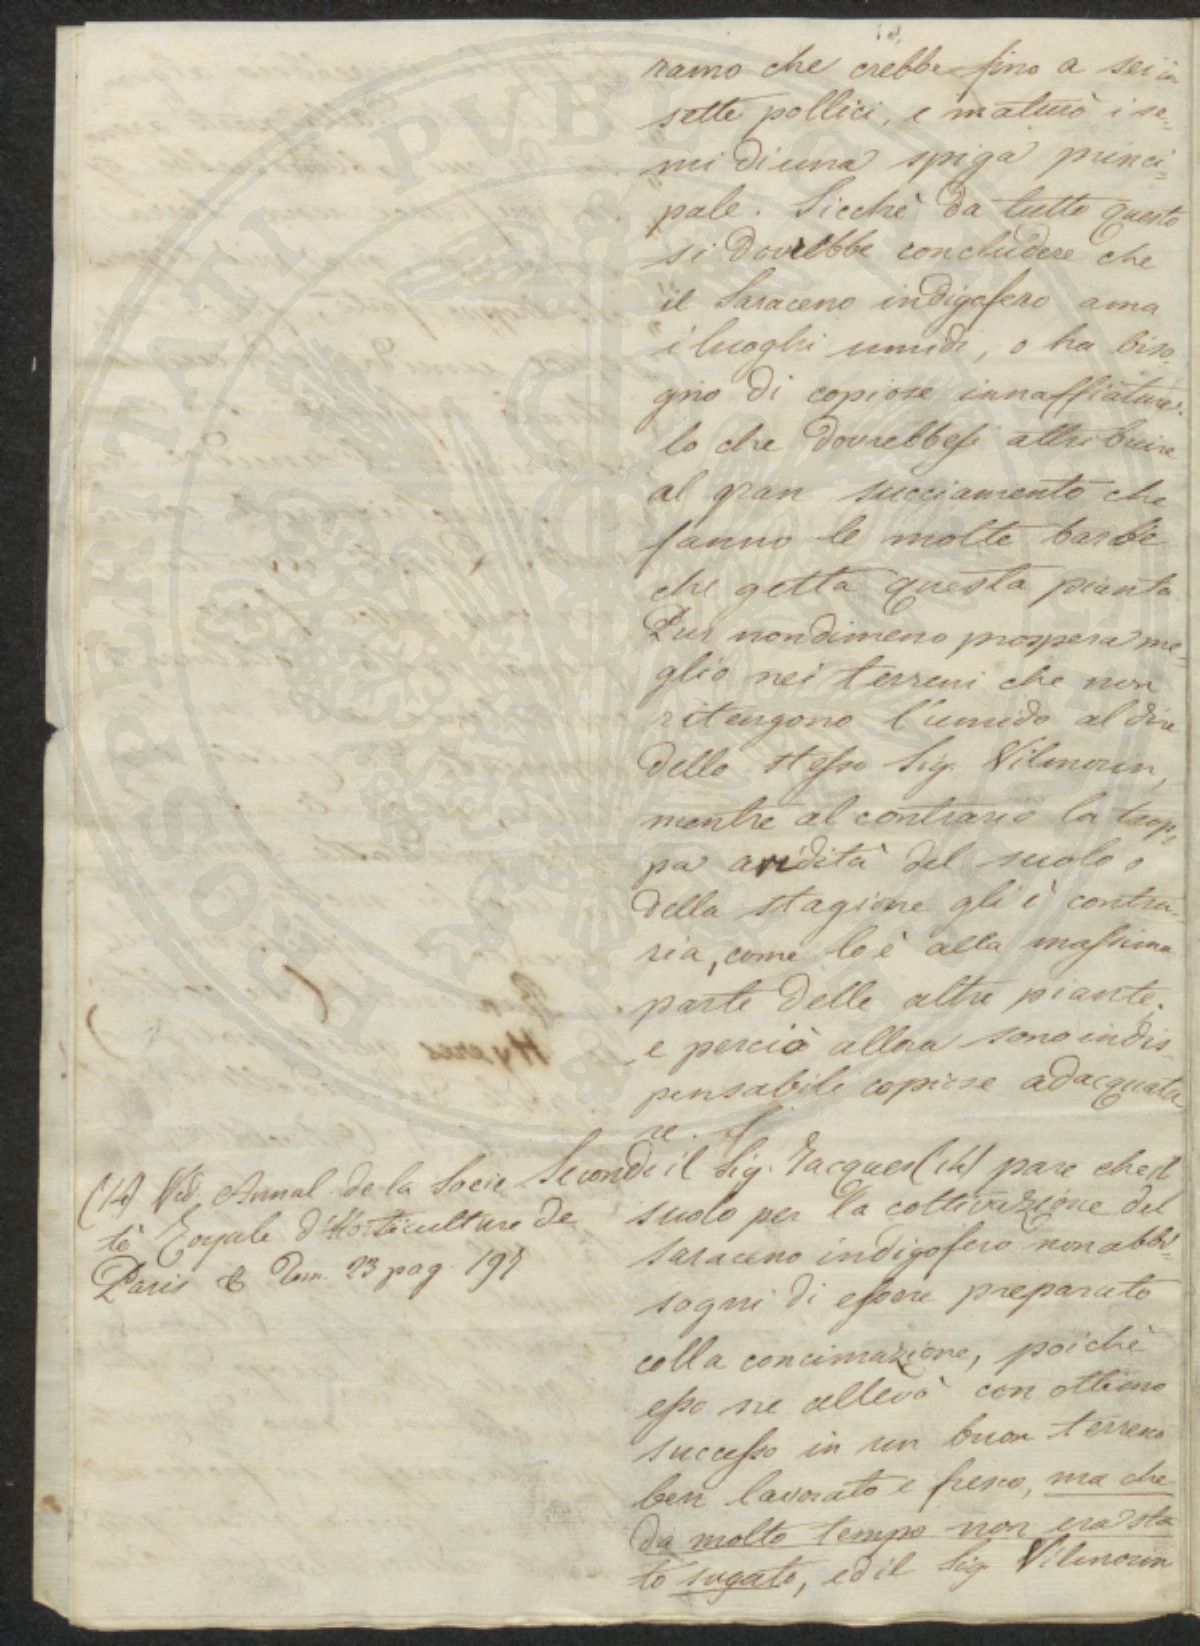 ramo che crebbe fino a sei in
sette pollici, e maturò i se=
mi di una spiga princi=
pale. Sicchè da tutto questo
si dovrebbe concludere che
il Saraceno indigofero ama
i luoghi umidi, o ha biso=
gno di copiose innaffiature.
lo che dovrebbesi attribuire
al gran succiamento che
fanno le molte barbe
che getta questa pianta
Pur nondimeno prospera me=
glio nei terreni che non
ritengono l'umido al dire
dello stesso Sig. Vilmorin,
mentre al contrario la trop=
pa aridità del suolo o
della stagione gli è contra=
ria, come lo è alla massima
parte delle altre piante;
e perciò allora sono indis=
pensabili copiose adacquatu
re.
Secondo il Sig. Jacques (14) pare che il
suolo per la coltivazione del
saraceno indigofero non abbi=
sogni di essere preparato
colla concimazione, poichè
esso ne allevò con ottimo
successo in un buon terreno
ben lavorato e fresco, ma che
da molto tempo non era sta
to sugato, ed il Sig. Vilmorin
(14) Vid. Annal. de la Socie
tè Royale d'Horticulture de
Paris & Tom. 23 pag. 197
PROSPERITATI PUBLICAE